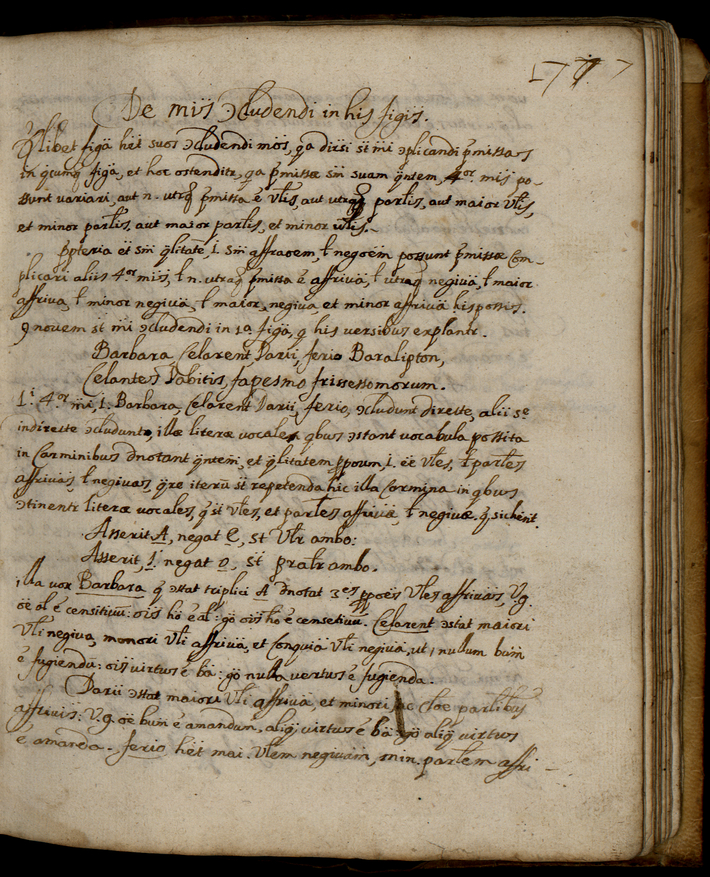 177
De miis ɔcludendi in his figis.
Qlibet figä hët suos ɔcludendi mös, qa diïsi st mi ɔplicandi pmissas
in qcunq figä, et hoc ostenditr, qa pmissæ sm suam qntem, 4or mis po-
ssunt variari, aut n. utrq pmissa ē vlis, aut utraq partlis, aut maior vlis,
et minor partlis, aut maior partlis, et minor vlis.
ppteria ët sm qlitate, i. sm affraoem, t negoëm possunt pmissæ com-
plicari aliis 4or mis, t n. utraq pmissa ē affrivä, t utraq negivä, t maior
affriva, t minor negivä, t maior, negiva, et minor affrivä his possis.
9 novem st mi ɔcludendi in 1a figä, q his versibus explantr.
Barbara, Celarent Darii, ferio Baralipton,
Celantes Dabitis, fapesmo frissesomorum.
1i 4or mi, i. Barbara, Celarent Darii, ferio, ɔcludunt directe, alii se
indirecte ɔcludunt, illæ literæ vocales qbus ɔstant vocabula possita
in Carminibus dnotant qntem, et qlitatem ppoum, i. ëe vles, t partles
affrivas, t negivas, qre iterü st repetenda hic illa Carmina in qbus
ɔtinentr literæ vocales, q st vles, et partles affrivæ, t negivæ. q sic hent.
Asserit A, negat E, st vlr ambo:
Asserit, I negat O, st pratr ambo.
illa vox Barbara q ɔstat triplici A dnotat 3es ppoës vles affrivas, v.g.
oë al ē censitivü: oïs hö ē al: gö oïs hö ē censetivü. Celarent ɔstat maiori
vli negiva, monori vli affrivä, et Conquiä vli negivä, ut, nullum bum
ē fugiendü: oïs virtus ē bä: gö nulla vertus ē fugienda.
Darii ɔstat maiori vli affrivä, et minori, ac cloe partlibus
affrivis: v.g. oë bum ē amandum, aliq virtus ē bä: gö aliq virtus
ē amanda. ferio hët mai. vlem negivam, min. partlem affri-